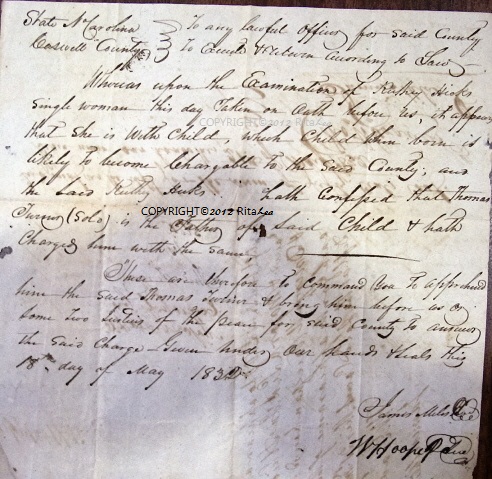 State N Carolina } To any lawful Officer for said County
Caswell County } to Execute & Return According to Law
Whereas upon the Examination of Kuthy Hicks
Single woman this day taken on Oath before us, it appears
COPYRIGHT©2012 RitaLea
that She is With Child, which Child when born is
likely to become Chargable to the Said County, and
the Said Kuthy Hicks hath Confessed that Thomas
COPYRIGHT©2012 RitaLea
Turner (Solo) is the Father of Said Child & hath
Charged him with the Same
These are therefore to Command You To apprehend
him the Said Thomas Turner & bring him before us or
Some Two Justices of the peace for Said County to answer
the Said Charge Given Under Our hands & Seals this
18th day of May 1832
James Miles
W Hooper